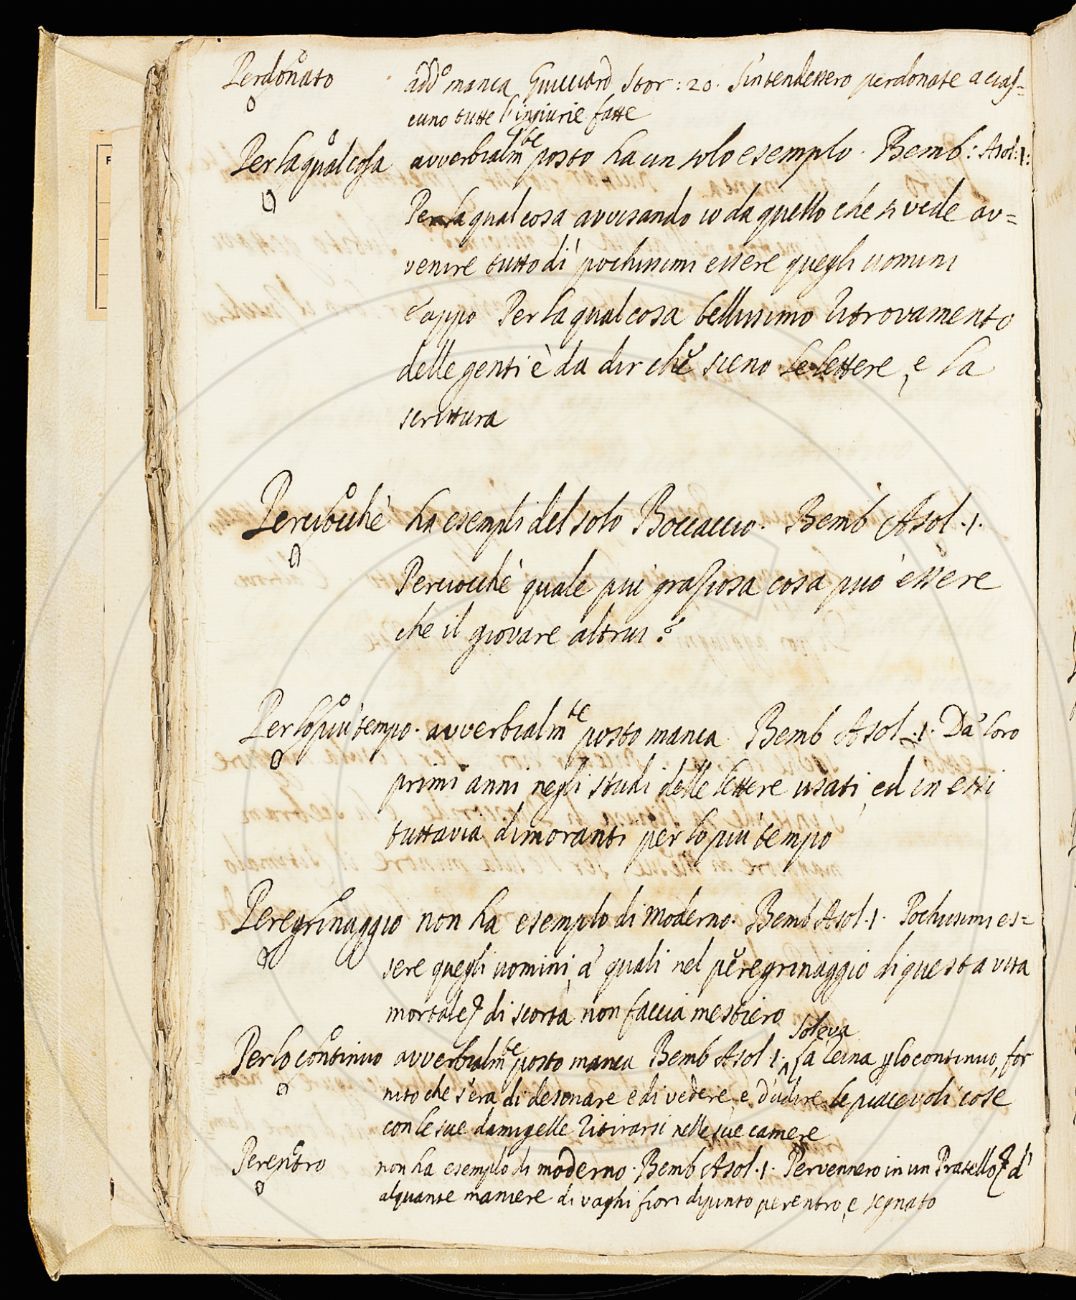 Perdonato add.º manca Guicciard Stor: 20. S'intendessero perdonate a cias=
cuno tutte l'ingiurie fatte
Per la qual cosa avverbialm.te posto ha un solo esempio. Bemb: Asol: 1:
Per la qual cosa avvisando io da quello che si vede av=
venire tutto dì pochissimi essere quegli uomini
e appo Per la qual cosa bellissimo ritrovamento
delle genti è da dir che sieno le lettere, e la
scrittura
Perciocchè ha esempli del solo Boccaccio. Bemb Asol. 1.
Perciocchè quale più graziosa cosa può essere
che il giovare altrui?
Per lo più tempo. avverbialm.te posto manca. Bemb Asol. 1. Da loro
primi anni negli studi delle lettere usati, ed in essi
tuttavia dimoranti per lo più tempo
Peregrinaggio non ha esemplo di moderno. Bemb Asol. 1. Pochissimi es=
sere quegli uomini a' quali nel peregrinaggio di questa vita
mortale di scorta non faccia mestiero
Per lo continuo avverbialm.te posto manca Bemb Asol 1. soleva la Reina p lo continuo, for
nito che s'era di desinare e di vedere, e d'udire le piacevoli cose
con le sue damigelle ritirarsi nelle sue camere
Perentro non ha esemplo di moderno. Bemb Asol. 1. Pervennero in un Pratello di
alquante maniere di vaghi fiori dipinto per entro, e segnato